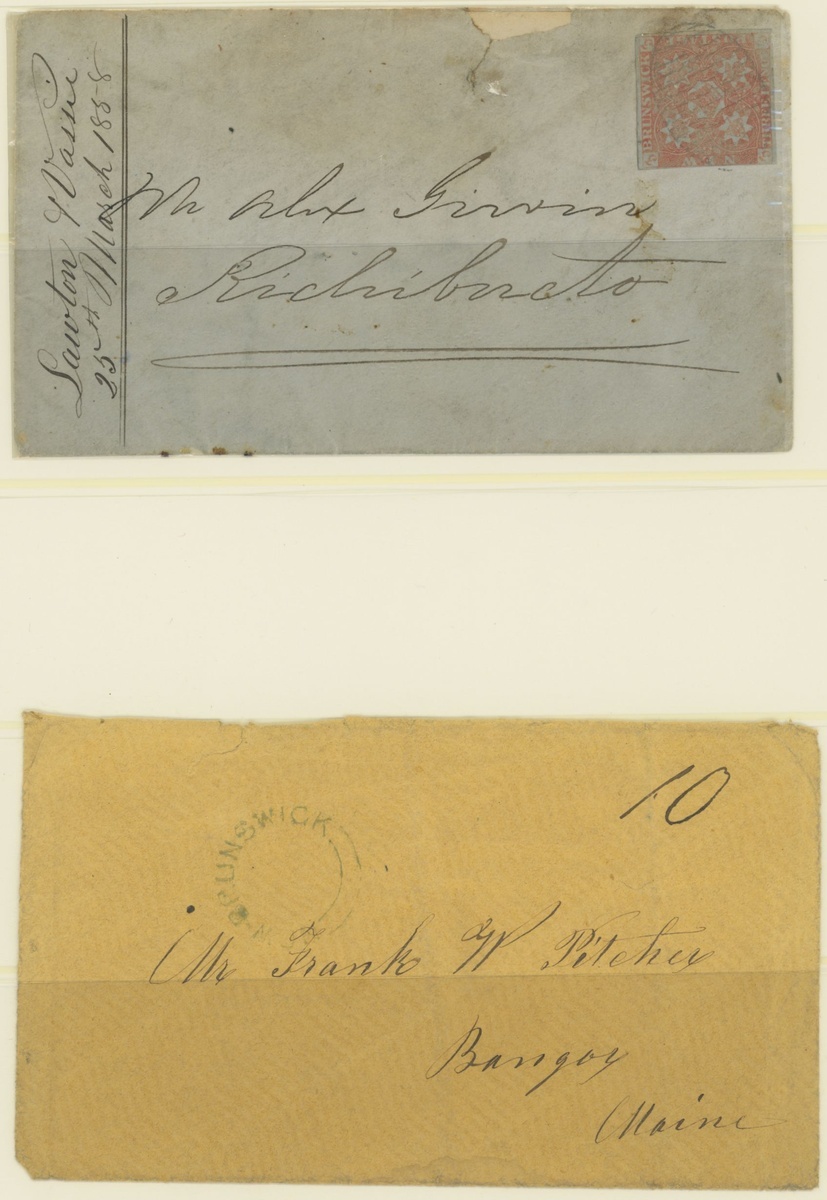 Lawton & Vassie
25th March 1858
BRUNSWICK
Mr Alex Girvin
Richibucto
10
BRUNSWICK
Mr Frank W Pitcher
Bangor
Maine